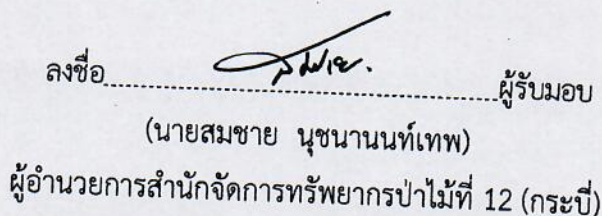 ลงชื่อ สมชาย. ผู้รับมอบ
(นายสมชาย นุชนานนท์เทพ)
ผู้อำนวยการสำนักจัดการทรัพยากรป่าไม้ที่ 12 (กระบี่)